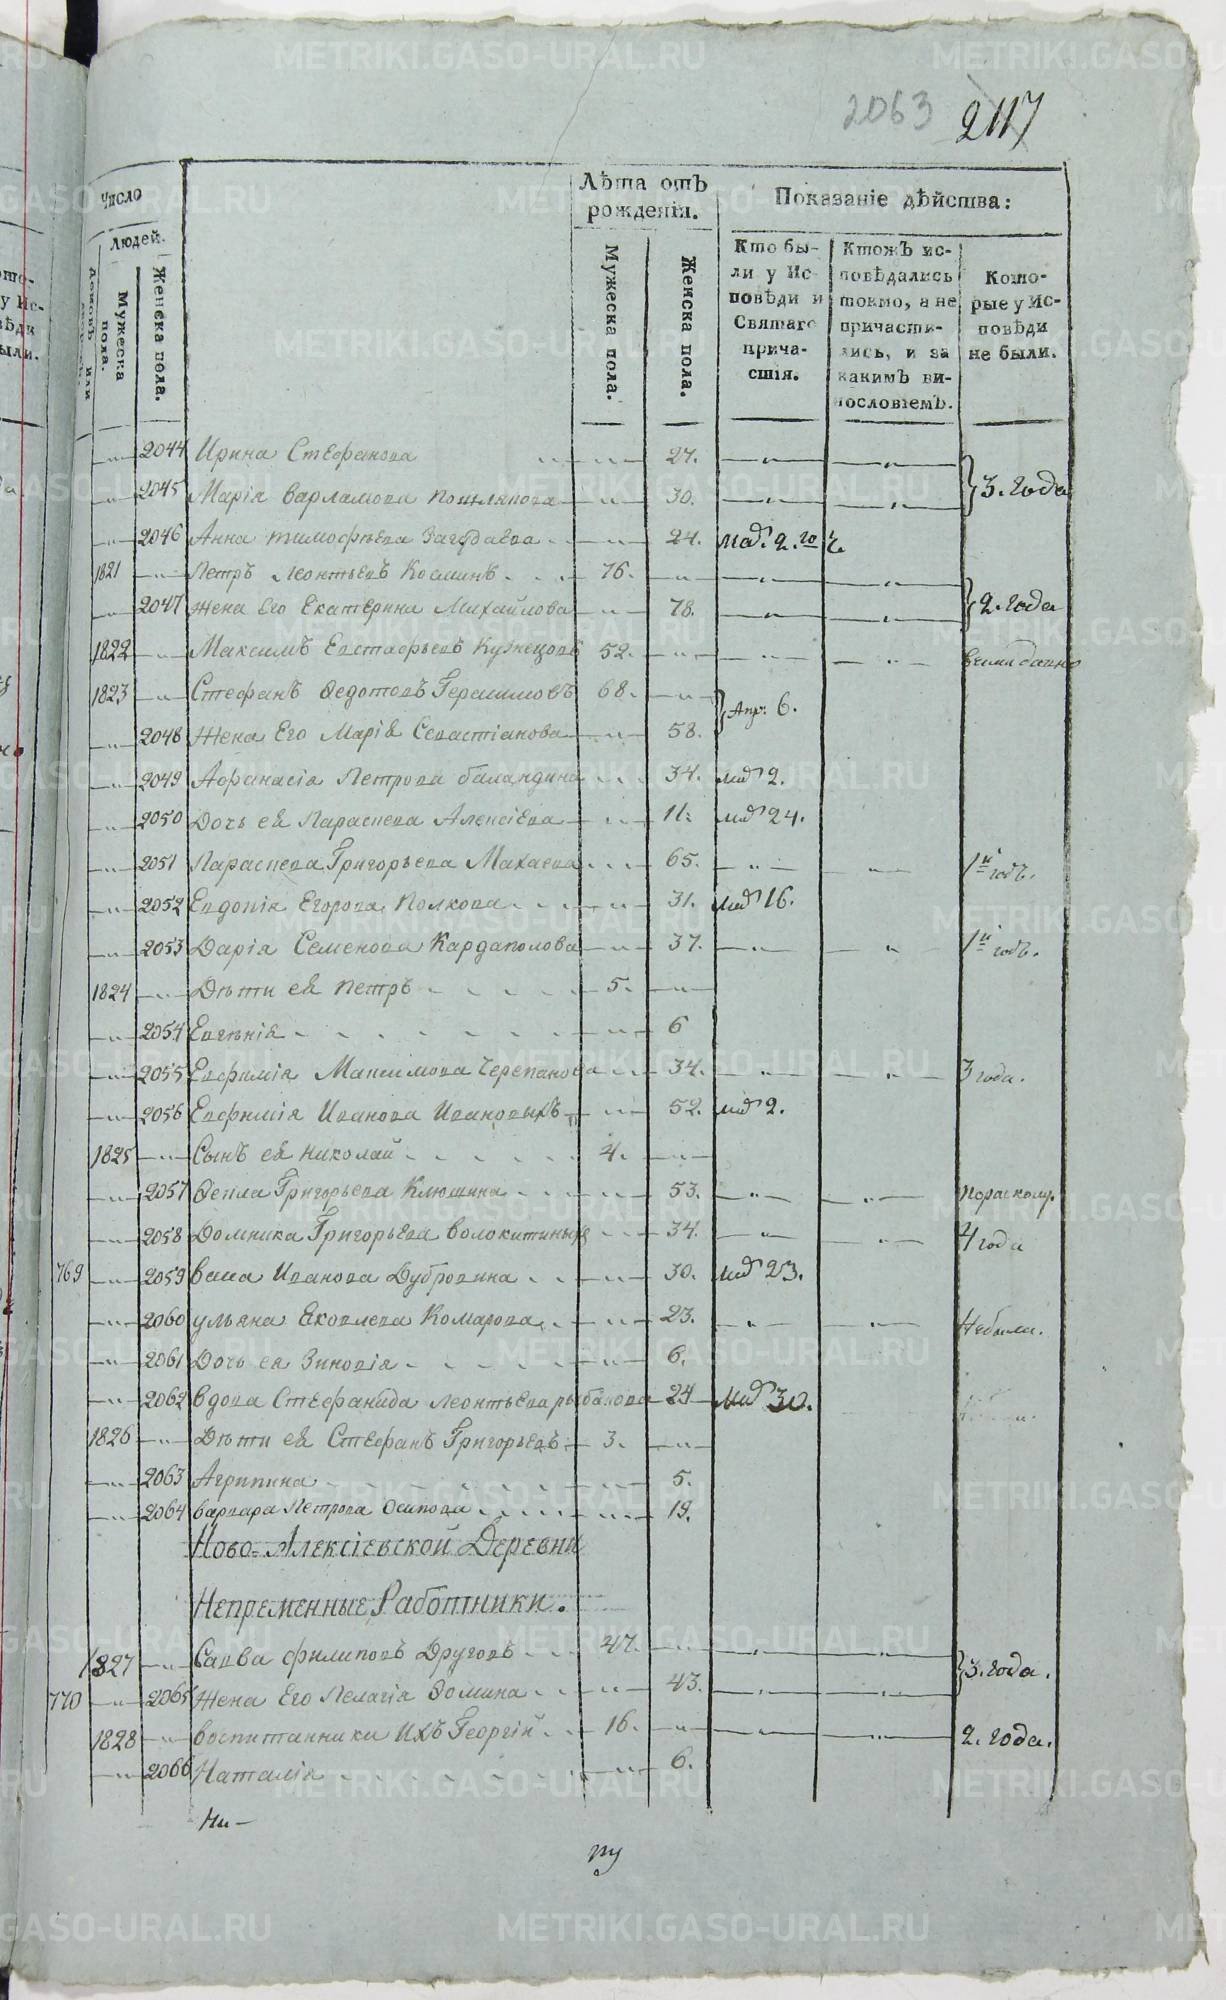 2063 2117
Число
Людей.
Мужеска пола.
Женска пола.
Лѣта отъ рожденія.
Мужеска пола.
Женска пола.
Показаніе дѣйства:
Кто бы-
ли у Ис-
повѣди и
Святаго
прича-
стія.
Ктожъ ис-
повѣдались
токмо, а не
причасти-
лись, и за
какимъ ви-
нословіемъ.
Кото-
рые у Ис-
повѣди
не были.
2044 Ирина Стефанова 27.
2045 Марія Варламова 30. } 3. года
2046 Анна Тимофѣева 24. Маѵ. 2.го
1821 Петръ Леонтьевъ Косминъ 76.
2047 Жена Его Екатерина Михайлова 78. } 2. года
1822 Максимъ Евстафьевъ Кузнецовъ 52.
1823 Стефанъ Ѳедотовъ Герасимовъ 68. } Апр: 6.
2048 Жена Его Марія Севастіанова 58.
2049 Афанасія Петрова Баландина 34. 2.
2050 Дочь ея Параскева Алексіева 11. 24.
2051 Параскева Григорьева Махаева 65. 1й годъ.
2052 Евдокія Егорова Волкова 31. 16.
2053 Дарія Семенова Кардаполова 37. 1й годъ.
1824 Дѣти ея Петръ 5.
2054 Евгенія 6
2055 Евфимія Максимова Черепанова 34. 3 года.
2056 Евфимія Иванова Ивановыхъ 52. 2.
1825 Сынъ ея Николай 4.
2057 Ѳекла Григорьева Клюшина 53. по раскол.
2058 Домника Григорьева Волокитиныхъ 34. 4 года
769 2059 Васса Иванова Дубровина 30. 23.
2060 Ульяна Яковлева Комарова 23. Небыли.
2061 Дочь ея Зиновія 6.
2062 вдова Стефанида Леонтьева Рыбакова 24 30.
1826 Дѣти ея Стефанъ Григорьевъ 3.
2063 Агрипина 5.
2064 Варвара Петрова Осипова 19.
Ново-Алексіевской Деревни
Непременные Работники.
1827 Савва Филиповъ Друговъ 47.
770 2065 Жена Его Пелагія Ѳомина 43. } 3. года.
1828 Воспитанники Ихъ Георгій 16. 2. года.
2066 Наталія 6.
Ни-